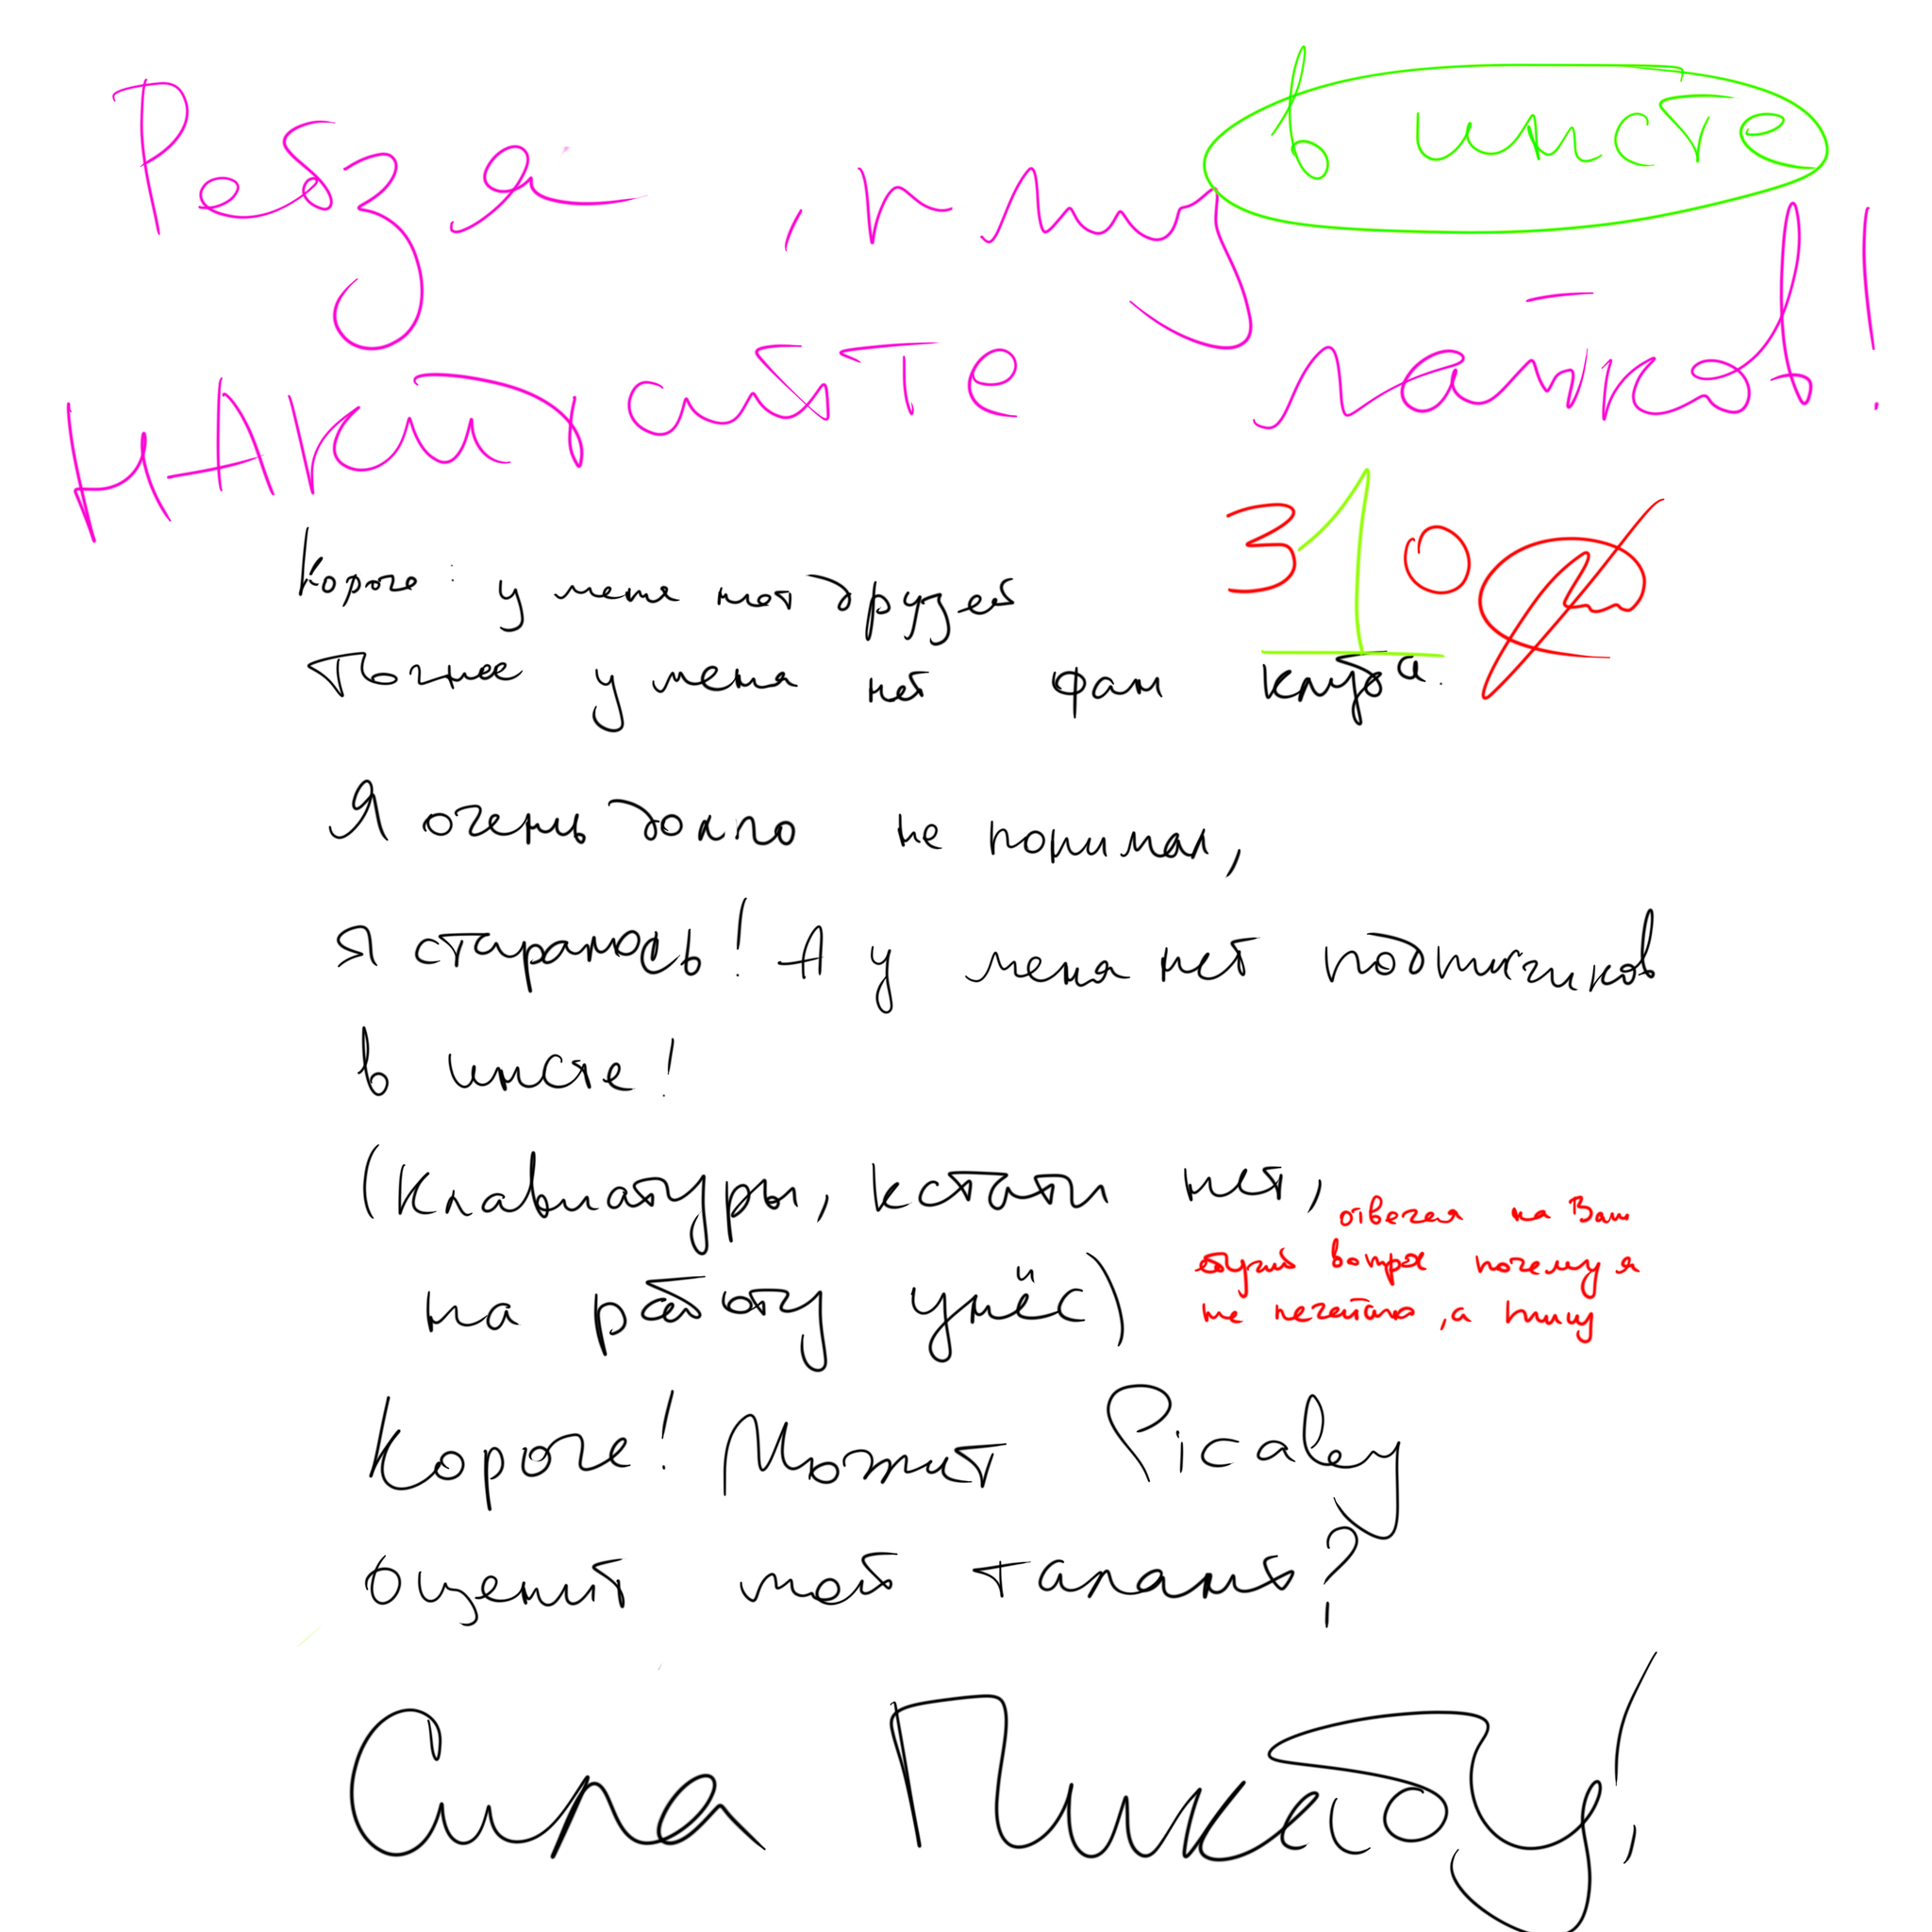 Ребзя, плиз в инсте
НАкидайте лайков!
310
Короче: у меня нет друзей
Точнее у меня нет фан клуба.
Я очень долго не понимал,
я стараюсь! А у меня нет подписчиков
в инсте!
(Клавиатуры, кстати нет,
на работу унёс)
отвечая на Ваш
вопрос почему я
не печатаю, а пишу
Короче! Может Picabey
оценит мой талант?
Сила Пикабу!